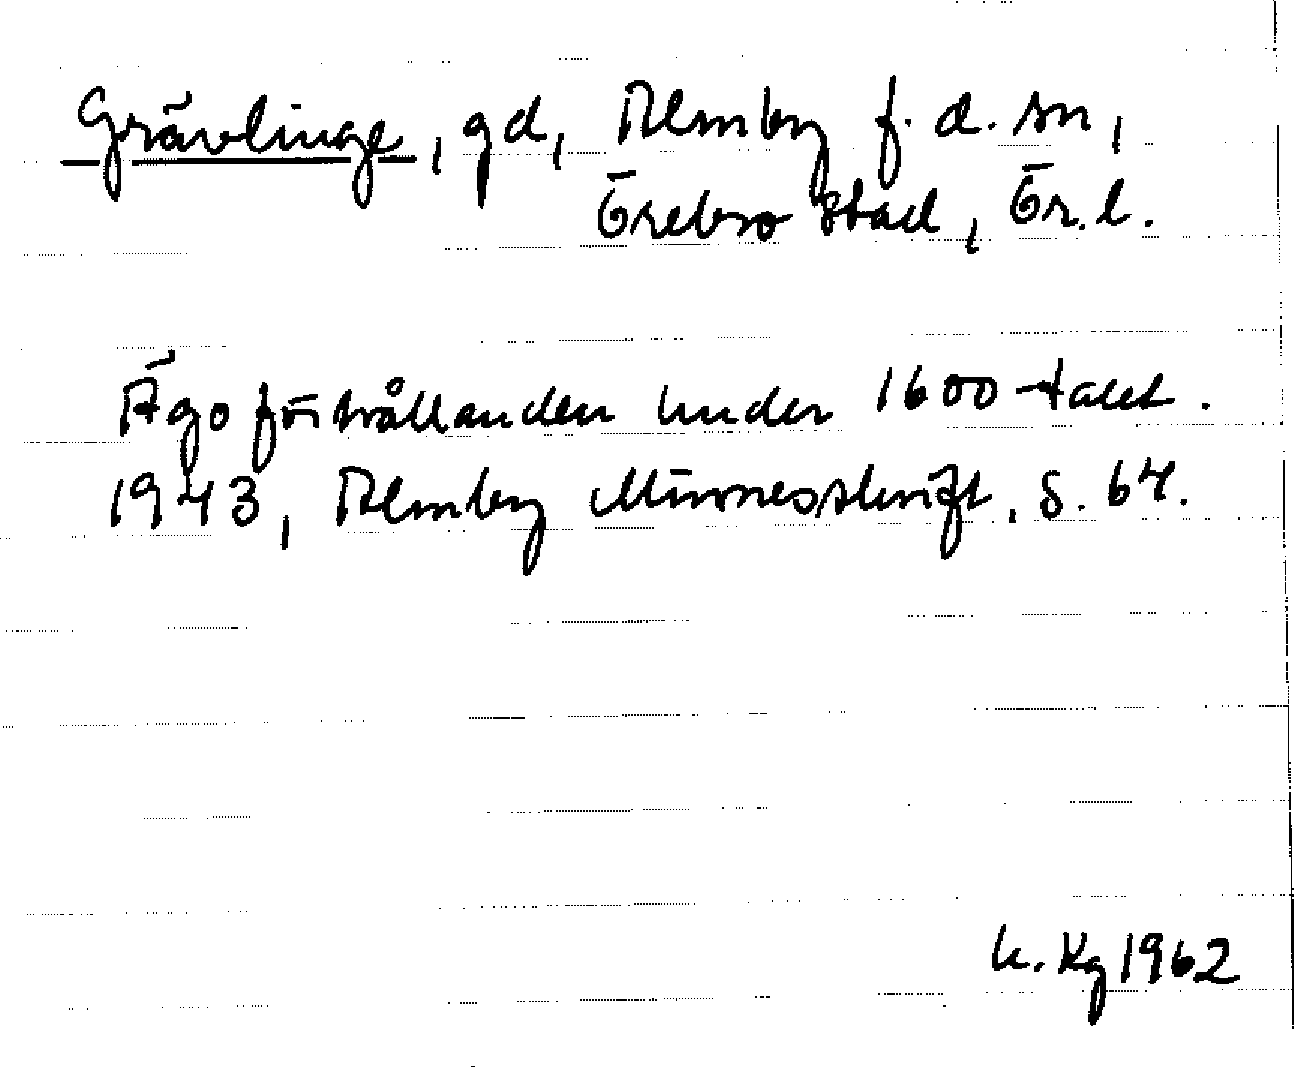 Grävlinge, gd, Almby f. d. sn,
Örebro stad, Ör. l.
Ägoförhållanden under 1600-talet.
1943, Almby Minnesskrift, s. 64.
k. Kg 1962